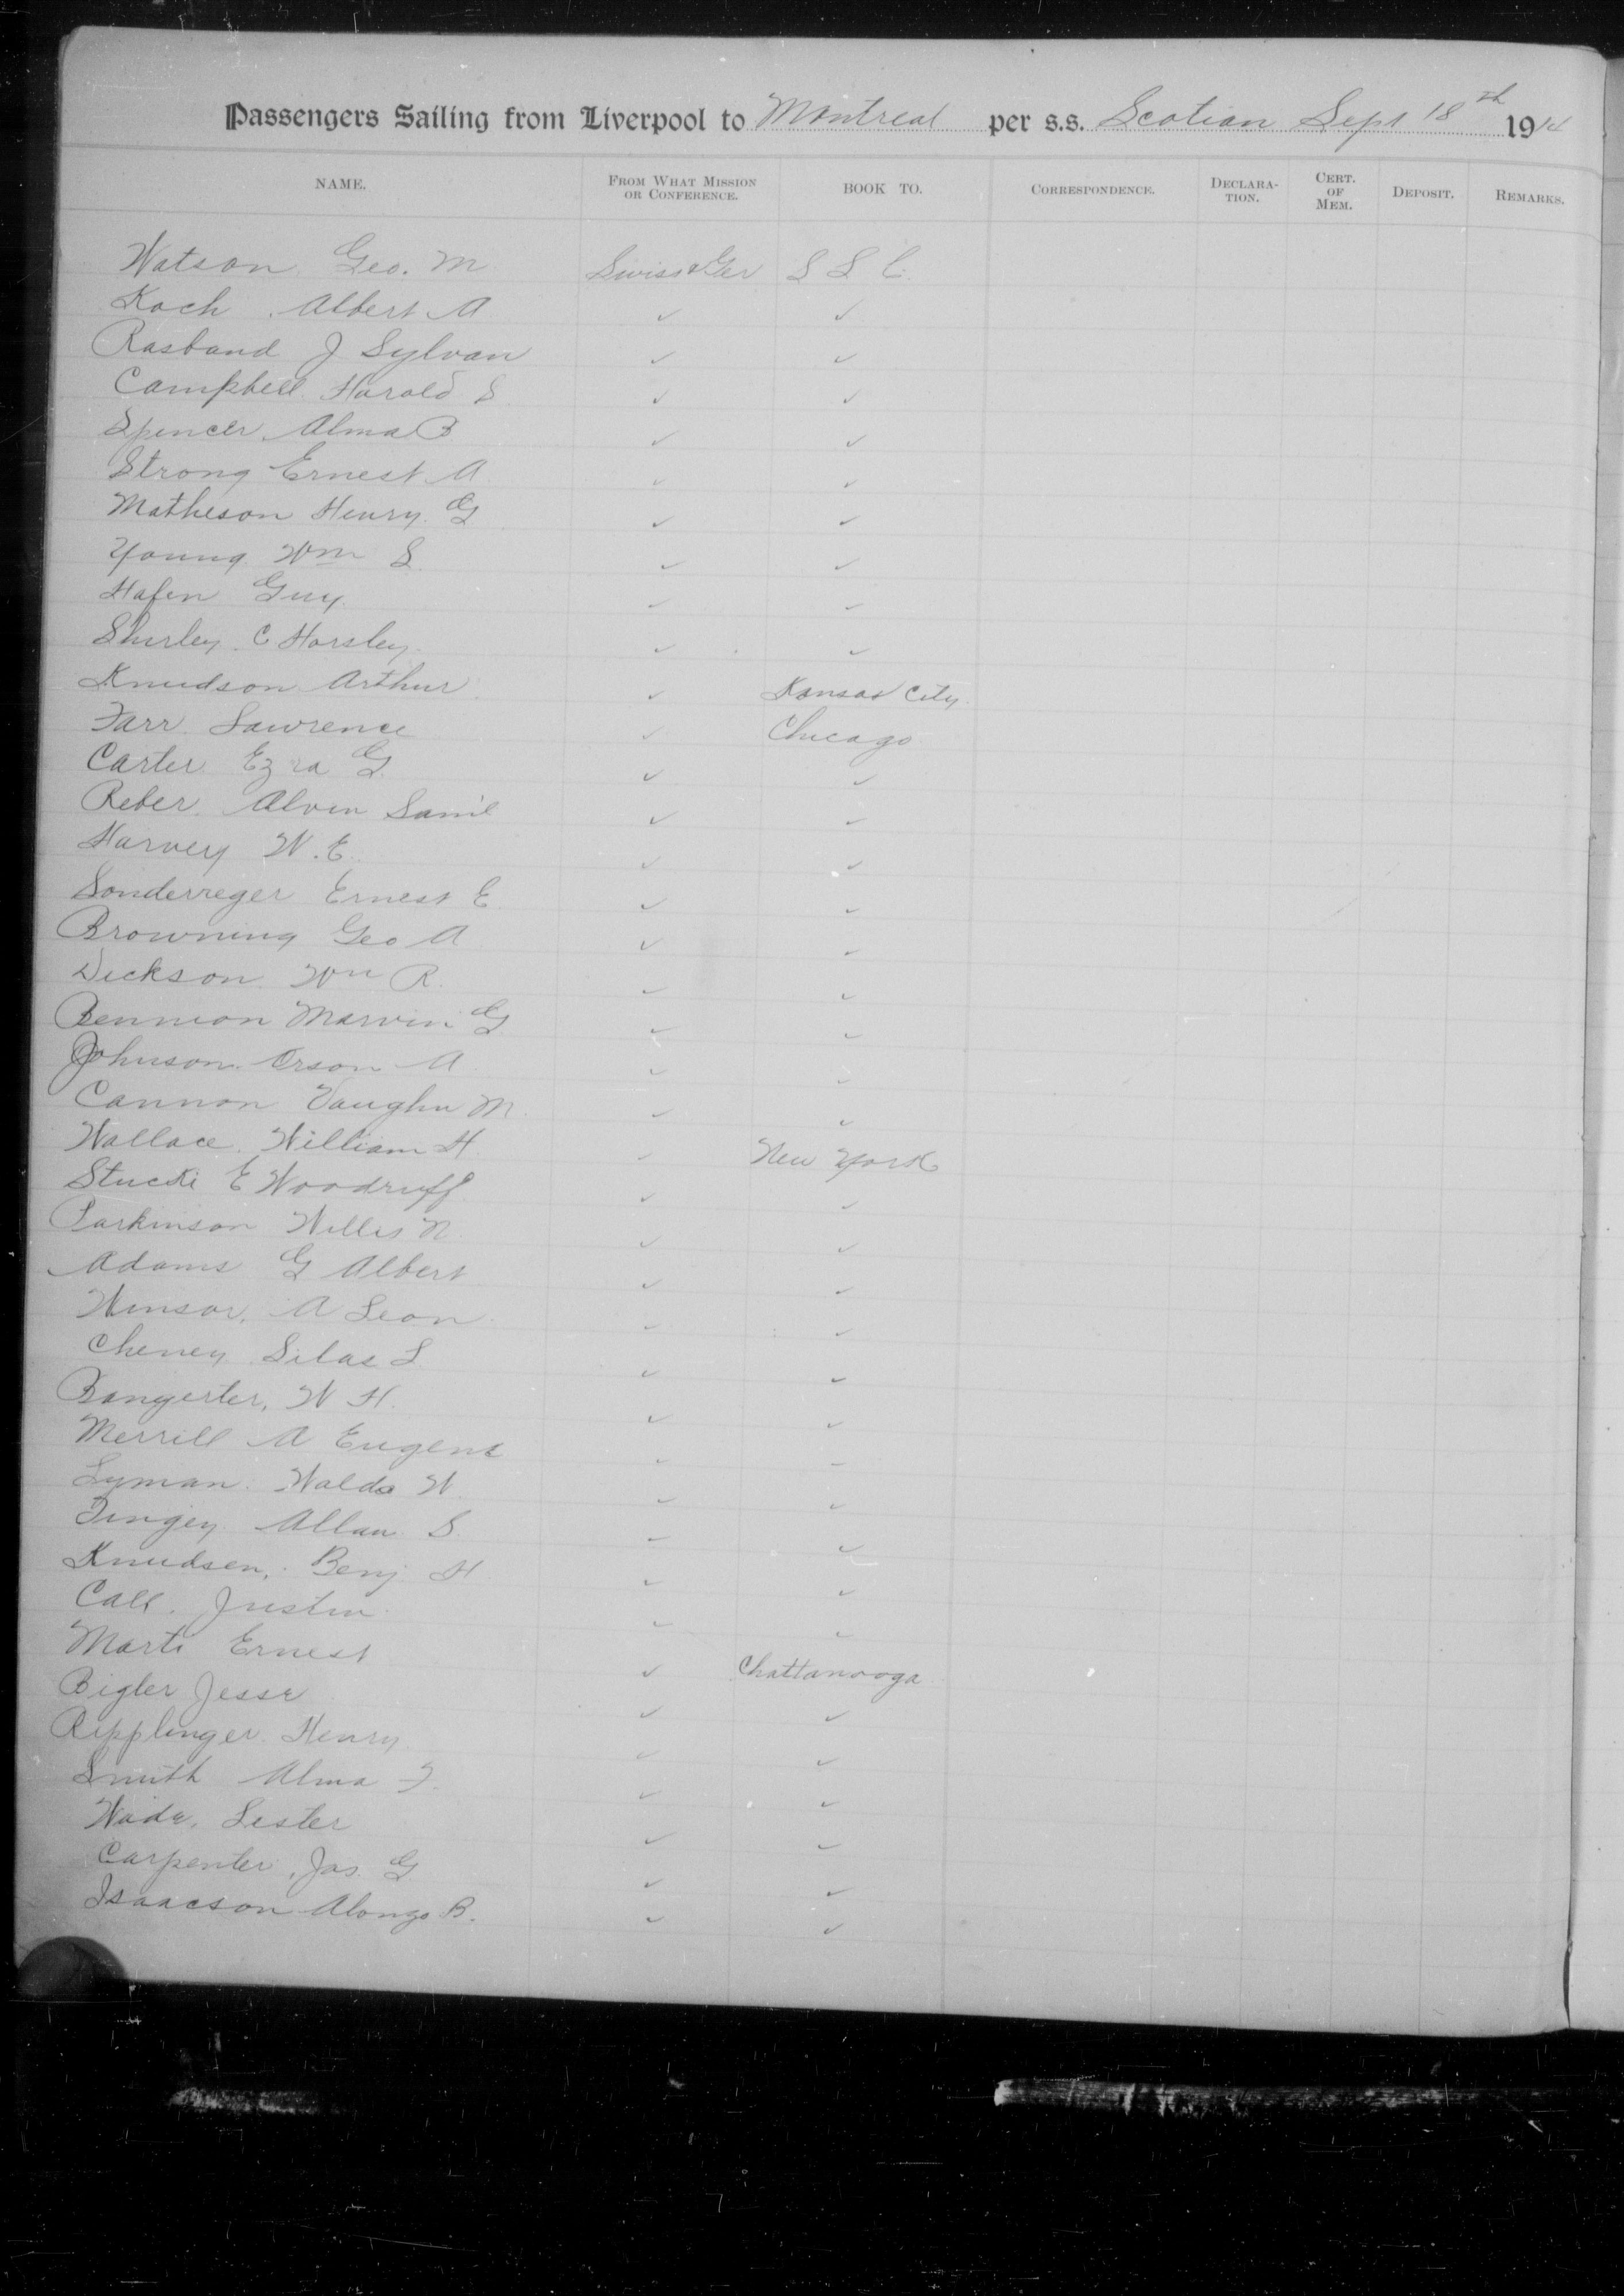 Passengers Sailing from Liverpool to Montreal per s.s. Scotian Sept 18th 1914
NAME. FROM WHAT MISSION OR CONFERENCE. BOOK TO. CORRESPONDENCE. DECLARA-TION. CERT. OF MEM. DEPOSIT. REMARKS.
Watson Geo. M Swiss & Ger S L C.
Koch, Albert A ✓ ✓
Rasband J Sylvan ✓ ✓
Campbell Harold S ✓ ✓
Spencer Alma B ✓ ✓
Strong Ernest A ✓ ✓
Matheson Henry G ✓ ✓
Young Wm S. ✓ ✓
Hafen Guy. ✓ ✓
Shurley C Horsley. ✓ ✓
Knudson Arthur ✓ Kansas City.
Farr Lawrence ✓ Chicago
Carter Ezra G ✓ ✓
Reber Alvin Saml ✓ ✓
Harvey W. E. ✓ ✓
Sonderreger Ernest E ✓ ✓
Browning Geo A ✓ ✓
Dickson Wm R. ✓ ✓
Bennion Marvin G ✓ ✓
Johnson Orson A ✓ ✓
Cannon Vaughn M. ✓ ✓
Wallace William H. ✓ New York
Stucki E Woodruff ✓ ✓
Parkinson Willis N ✓ ✓
Adams G Albert ✓ ✓
Winsor, A Leon ✓ ✓
Cheney Silas L ✓ ✓
Bangerter, W H. ✓ ✓
Merrill A Eugene ✓ ✓
Lyman Waldo W. ✓ ✓
Tingey Allan S. ✓ ✓
Knudsen, Benj H ✓ ✓
Call, Justin ✓ ✓
Marti Ernest ✓ Chattanooga
Bigler Jesse ✓ ✓
Ripplinger Henry ✓ ✓
Smith Alma F. ✓ ✓
Wade, Lester ✓ ✓
Carpenter, Jas. G ✓ ✓
Isaacson Alonzo B. ✓ ✓